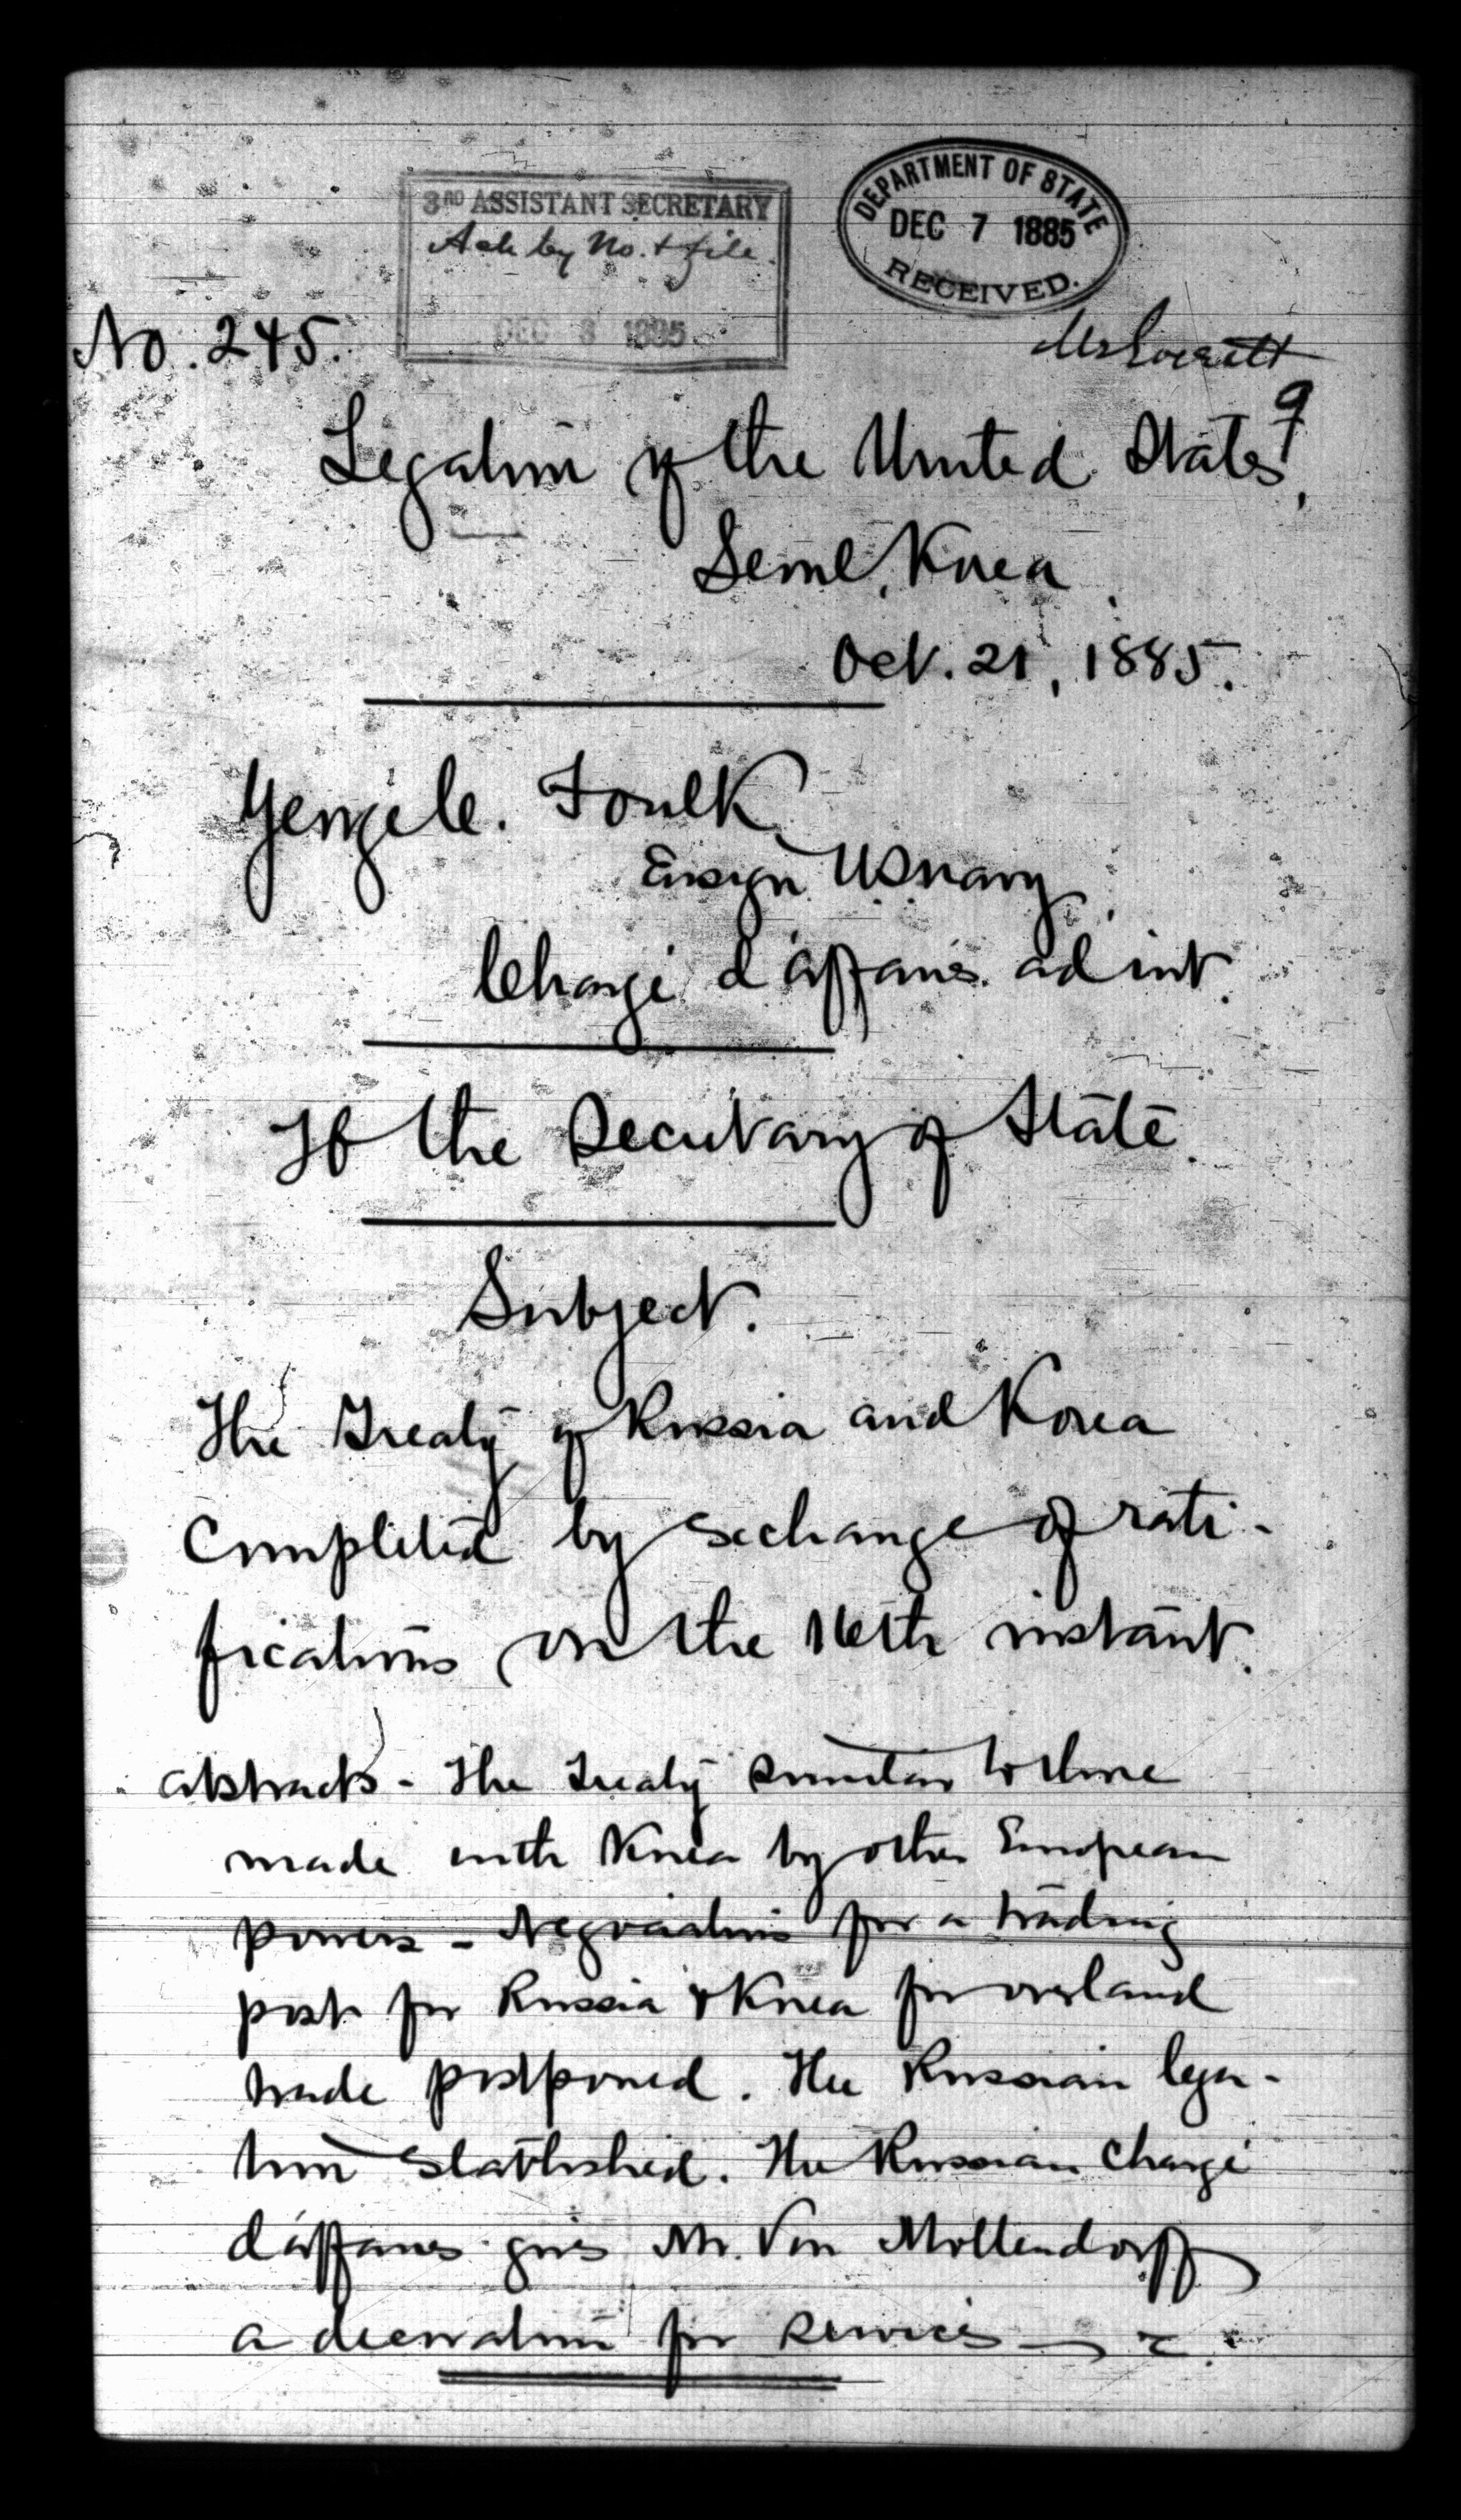 3RD ASSISTANT SECRETARY
Ack by No. & file.
DEC 8 1885
DEPARTMENT OF STATE
DEC 7 1885
RECEIVED.
No. 245.
Mr Everett
9
Legation of the United States,
Seoul, Korea,
Oct. 21, 1885.
George C. Foulk,
Ensign, US Navy,
Chargé d'affaires ad int.
To the Secretary of State.
Subject.
The Treaty of Russia and Korea
completed by exchange of rati-
fications on the 16th instant.
Abstracts - The Treaty similar to those
made with Korea by other European
powers - Negotiations for a trading
post for Russia & Korea for overland
trade postponed. The Russian lega-
tion established. The Russian Chargé
d'affaires gives Mr. Von Mollendorff
a decoration for services